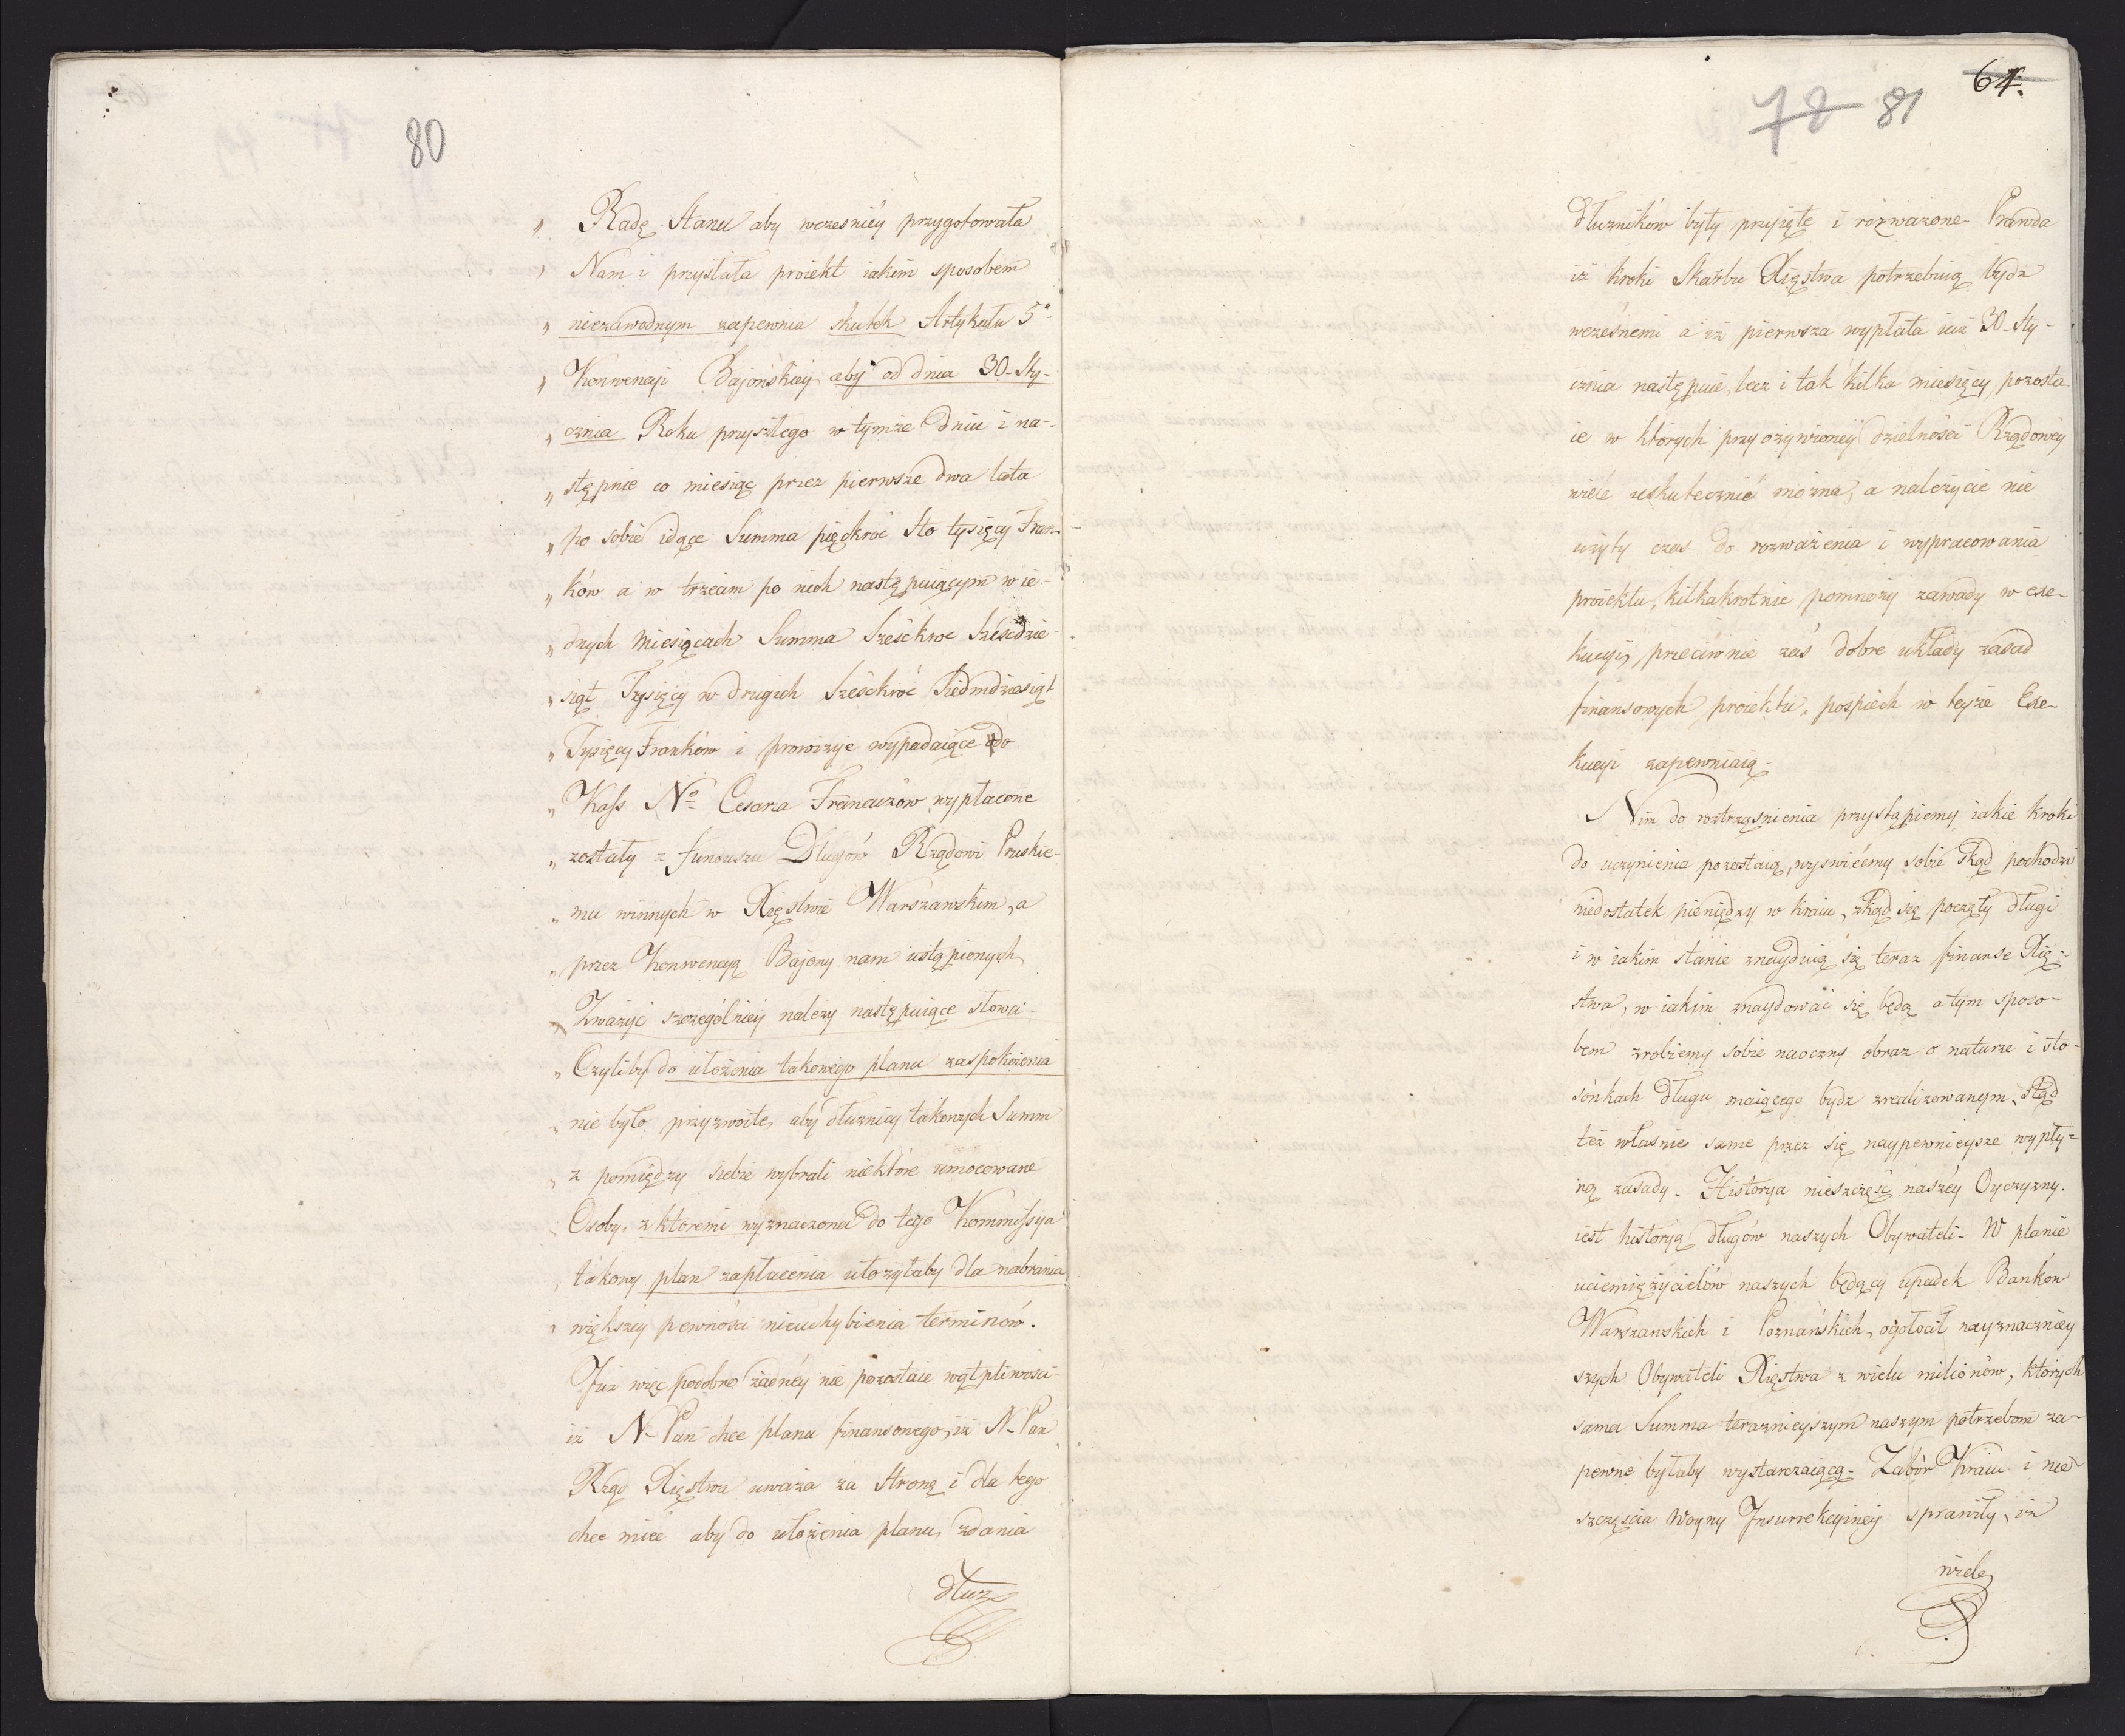 80
„ Radę Stanu aby wczesniéy przygotowała
„ Nam i przysłała proiekt iakim sposobem
„ niezawodnym zapewnia skutek Artykułu 5º
„ Konwencyi Bajońskiey aby od dnia 30. Sty-
„ cznia Roku przyszłego w tymże dniu i na-
„ stępnie co miesiąc przez pierwsze dwa lata
„ po sobie idące Summa pięckroć Sto tysięcy Fran-
„ ków a w trzecim po nich następuiącym w ie-
„ dnych Miesiącach Summa Sześćkroć Sześćdzie-
„ siąt Tysięcy w drugich Sześćkroć Siedmdziesiąt
„ Tysięcy Franków i prowizye wypadaiące do
„ Kass Nº Cesarza Francuzow wypłacone
„ zostały z funduszu Długów Rządowi Pruskie-
„ mu winnych w Xięstwie Warszawskim, a
„ przez Konwencyą Bajony nam ustąpionych
„ Zważyć szczególniey należy następuiące słowa-
„ Czyliby do ułożenia takowego planu zaspokoienia
„ nie było przyzwoite, aby dłużnicy takowych Summ
„ z pomiędzy siebie wybrali niektóre umocowane
„ Osoby, z któremi wyznaczona do tego Kommissya
„ takowy plan zapłacenia ułożyłaby dla nabrania
„ większey pewności nieuchybienia terminów.
Już więc podobno żadnéy nie pozostaie wątpliwości
iż N. Pan chce planu finansowego, iż N. Pan
Rząd Xięstwa uważa za Stronę i dla tego
chce mieć aby do ułożenia planu, zdania
dłuż
64.
78 81
Dłużników były przyięte i rozważone- Prawda
iż kroki Skarbu Xięstwa potrzebuią bydź
wczesnemi a iż pierwsza wypłata iuż 30. Sty-
cznia następuie, lecz i tak kilka miesięcy pozosta-
ie w których przy ożywionéy dzielności Rządowéy
wiele uskutecznić można, a należycie nie
użyty czas do rozważenia i wypracowania
proiektu, kilkakrotnie pomnoży zawady w exe-
kucyi, przeciwnie zaś dobre układy zasad
finansowych proiektu, pospiech w teyże Exe-
kucyi zapewniaią.
Nim do roztrząśnienia przystąpiemy iakie kroki
do uczynienia pozostaią, wyswiećmy sobie skąd pochodzi
niedostatek pieniędzy w kraiu, zkąd się poczęły długi
i w iakim stanie znayduią się teraz finanse Xię-
stwa, w iakim znaydować się będą a tym sposo-
bem zrobiemy sobie naoczny obraz o naturze i sto-
sónkach długu maiącego bydź zrealizowanym, stąd
też właśnie same przez się naypewnieysze wypły-
ną zasady. Historya nieszczęść naszéy Oyczyzny.
iest historyą długów naszych Obywateli. W planie
uciemiężycielów naszych będący upadek Banków
Warszawskich i Poznańskich, ogołocił nayznaczniey
szych Obywateli Xięstwa z wielu milionów, których
sama Summa teraznieyszym naszym potrzebom za-
pewne byłaby wystarczaiącą. Zabór Kraiu i nie-
szczęścia Woyny Insurrekcyinéy sprawiły, iż
wiele